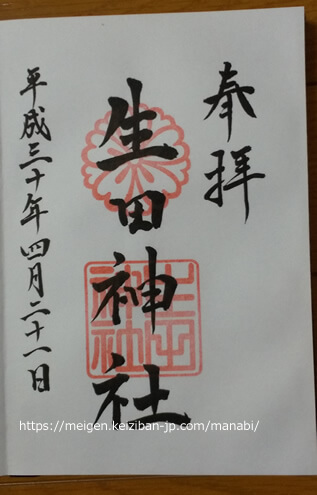 奉拝
生田神社
平成三十年四月二十一日
https://meigen.keiziban-jp.com/manabi/